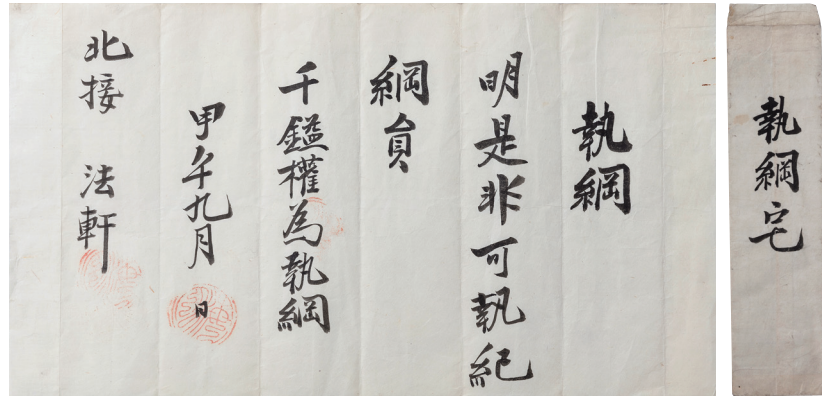 執綱宅
執綱
明是非可執紀
綱員
千鎰權為執綱
甲午九月 日
北接 法軒